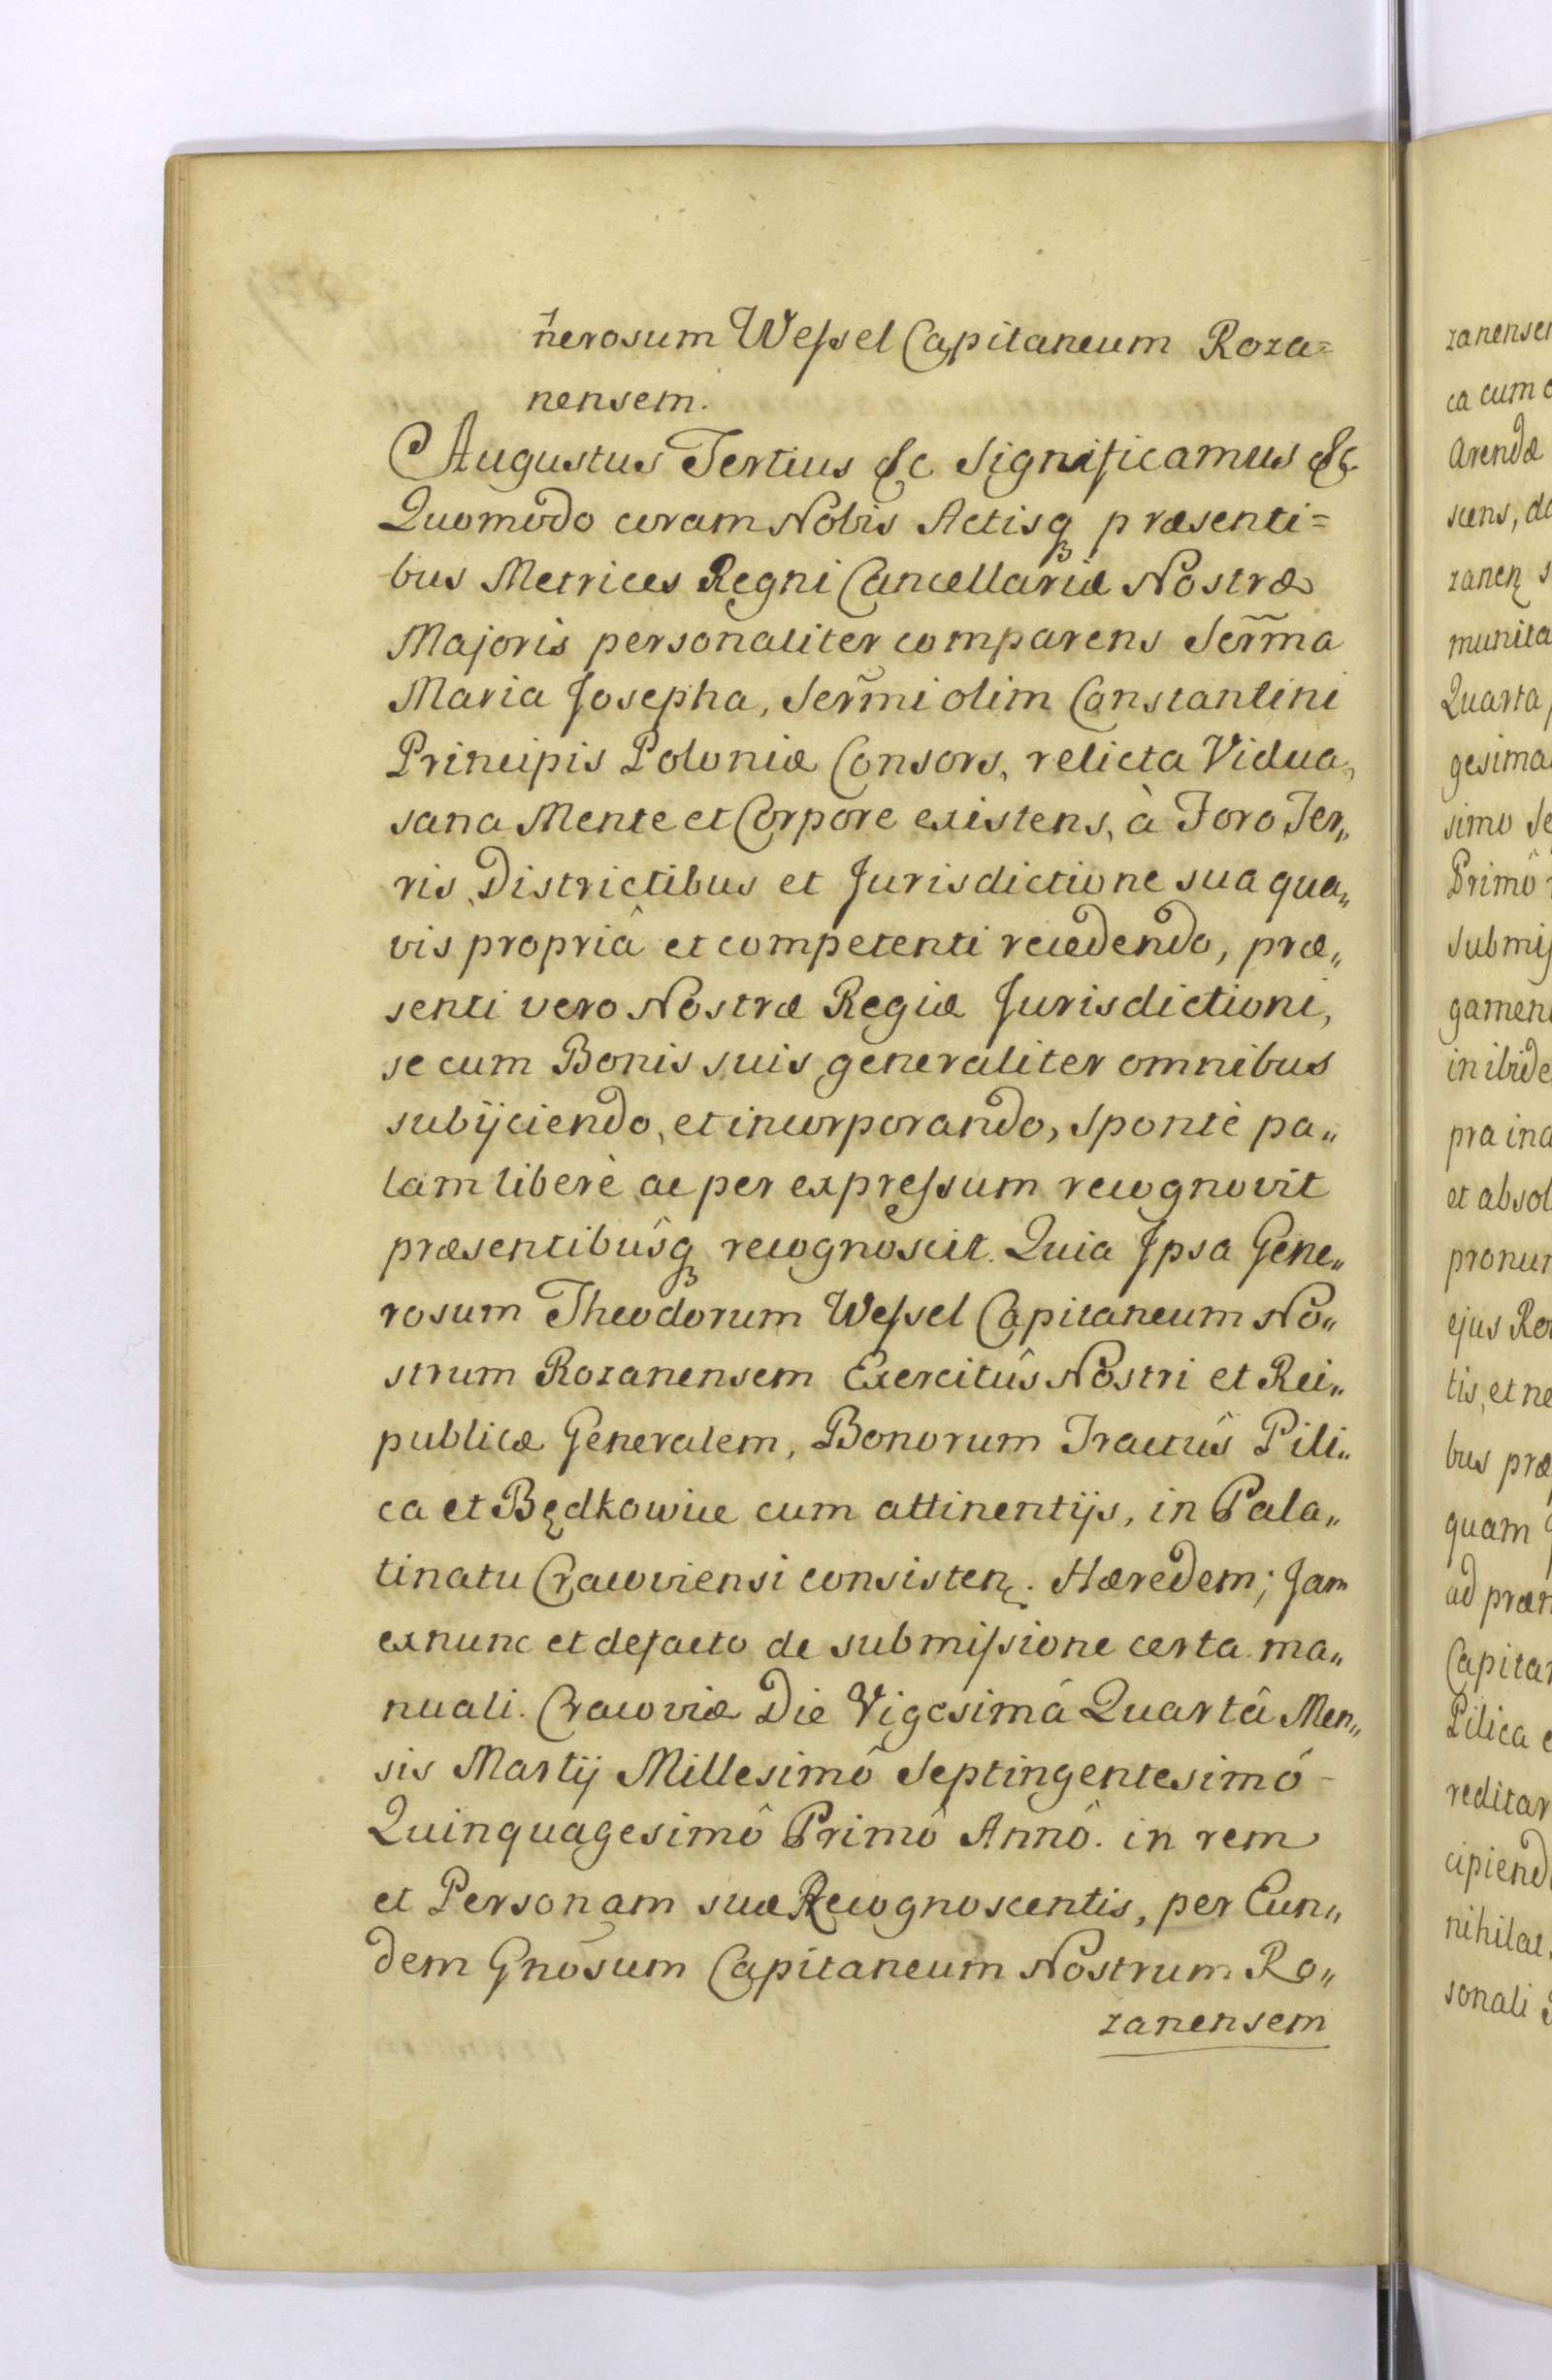 nerosum Weſsel Capitaneum Roza=
nensem.
Augustus Tertius &c Significamus &c
Quomodo coram Nobis Actisq præsenti=
bus Metrices Regni Cancellariæ Nostræ
Majoris personaliter comparens Serm̃a
Maria Josepha, Serm̃i olim Constantini
Principis Poloniæ Consors, relicta Vidua,
sana Mente et Corpore existens, à Foro Ter„
ris, Districtibus et Jurisdictione sua qua„
vis propriâ et competenti recedendo, præ„
senti vero Nostræ Regiæ Jurisdictioni,
se cum Bonis suis generaliter omnibus
subijciendo, et incorporando, Sponte pa„
lam liberè ac per expreſsum recognovit
præsentibûsq recognoscit. Quia Ipsa Gene„
rosum Theodorum Weſsel Capitaneum No„
strum Rozanensem Exercitûs Nostri et Rei„
publicæ Generalem, Bonorum Tractûs Pili„
ca et Będkowice cum attinentijs, in Pala„
tinatu Cracoviensi consisten. Hæredem; Jam
exnunc et defacto de submiſsione certa ma„
nuali. Cracoviæ Die Vigesimâ Quartâ Men„
sis Martij Millesimô Septingentesimô
Quinquagesimô Primô Annô. in rem
et Personam suæ Recognoscentis, per Eun„
dem Gnõsum Capitaneum Nostrum Ro„
zanensem
zanensem
ca cum
Arendæ
scens,
zanen
munita
Quarta
gesima
simo
Primô
submiſ
gamen
in ibide
pra
et absol
pronun
ejus
tis, et
bus præ
quam
ad
Capita
Pilica
reditar
cipiend
nihilat
sonali